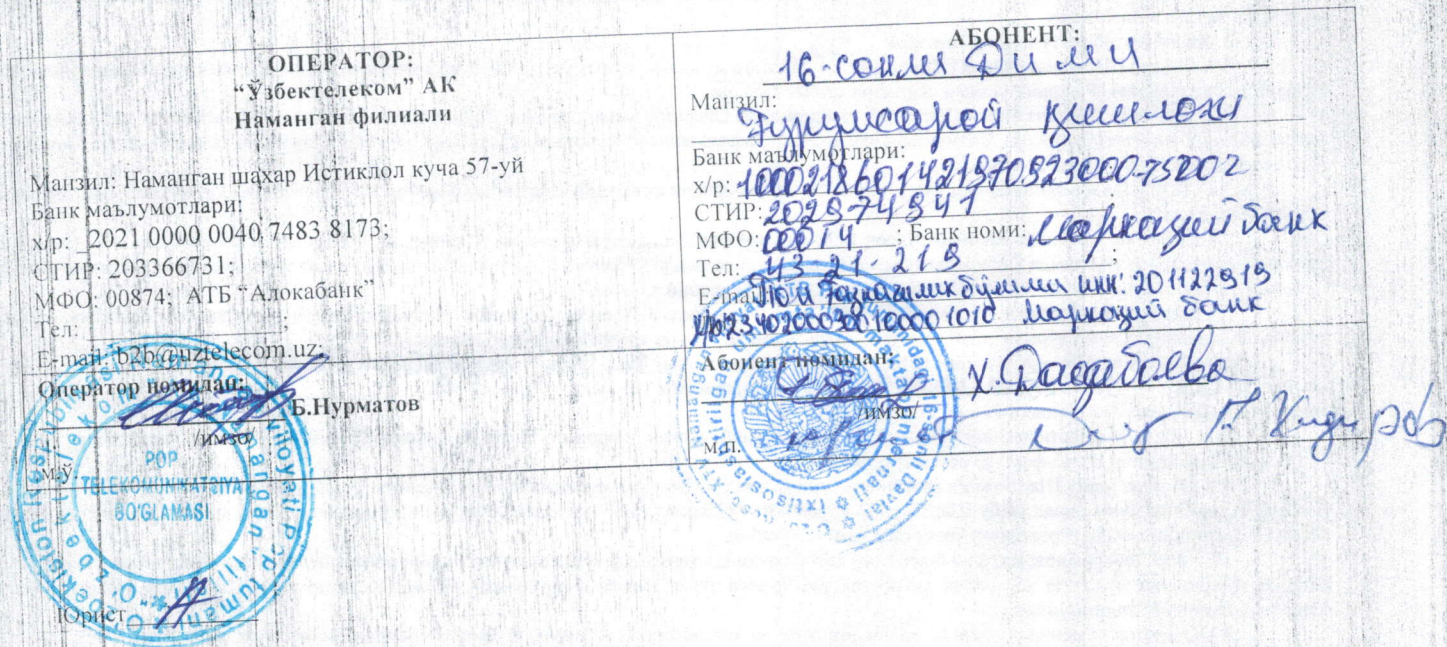 ОПЕРАТОР:
“Ўзбектелеком” АК
Наманган филиали
Манзил: Наманган шахар Истиклол куча 57-уй
Банк маълумотлари:
х/р: 2021 0000 0040 7483 8173;
СТИР: 203366731;
МФО: 00874; АТБ “Алокабанк”
Тел: ;
E-mail: b2b@uztelecom.uz;
Оператор номидан:
Б.Нурматов
/имзо/
м.ў
POP
TELEKOMUNIKATSIYA
BO'GLAMASI
Юрист
АБОНЕНТ:
16-сонли ДИМИ
Манзил:
қишлоғи
Банк маълумотлари:
х/р: 100021860142197092300075002
СТИР: 202974941
МФО: 00014 ; Банк номи: Марказий банк
Тел: 43-21-219 ;
E-mail: Ғазначилик бўлими инн: 201122919
х/р 23402000300100001010 Марказий банк
Абонент номидан:
Х. Дадабоева
/имзо/
м.п.